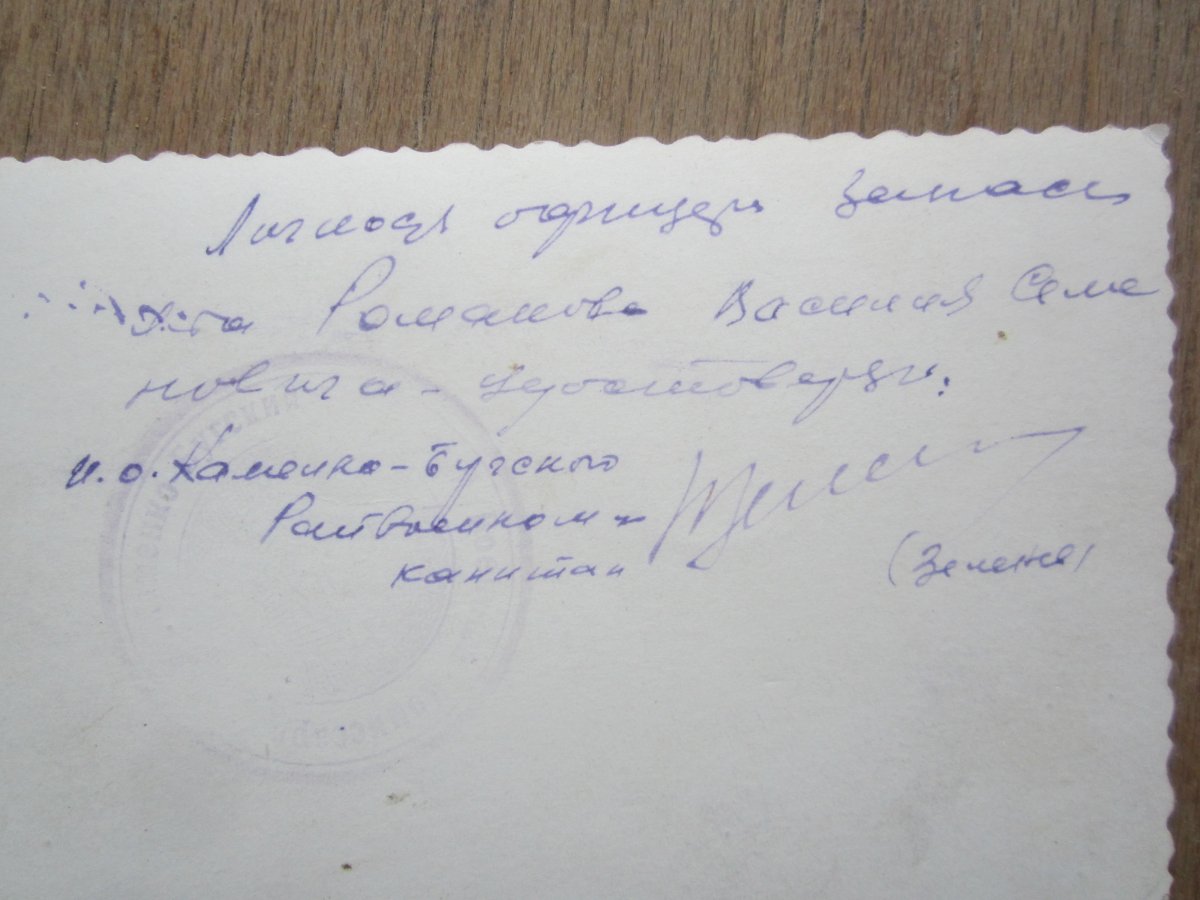 Личность офицера запаса
Романова Василия Семе
новича - удостоверяю.
и.о. Каменко-Бугского
Райвоенком -
капитан